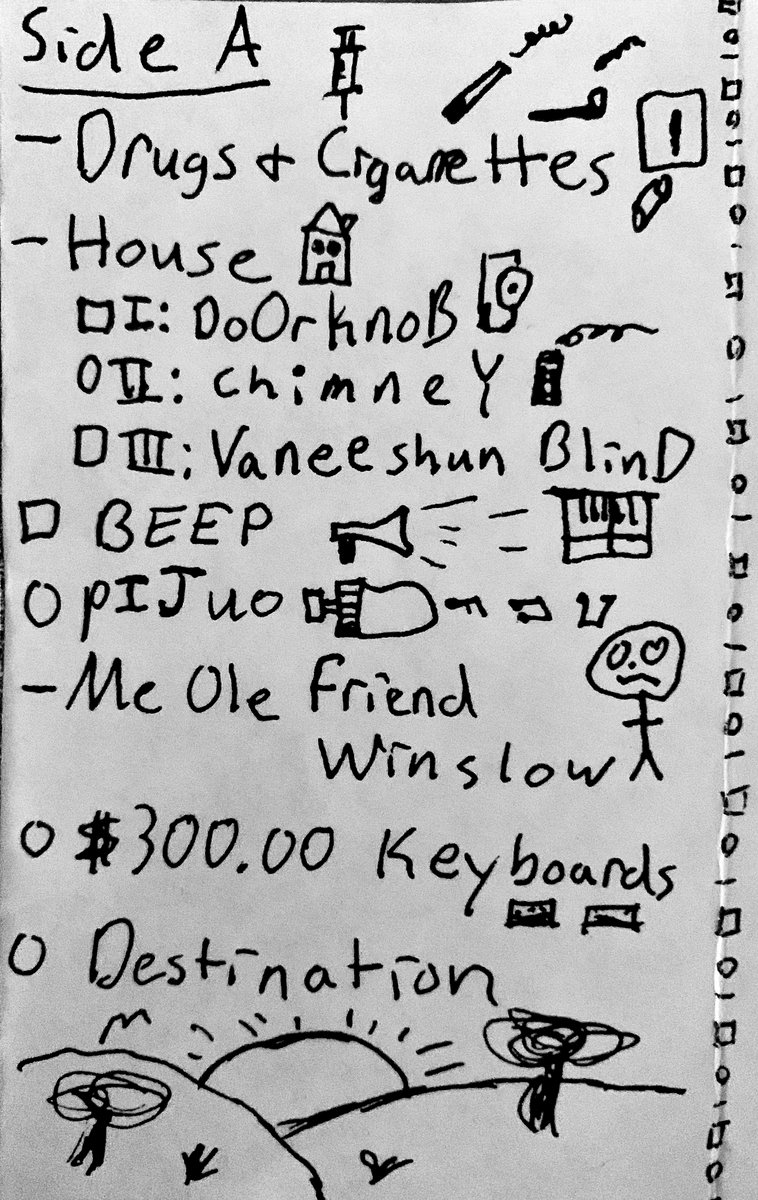 Side A
- Drugs + Cigarettes
- House
I: DoOrknoB
II: chimneY
III: Vaneeshun BlinD
BEEP
pIJuo
- Me Ole Friend
Winslow
$300.00 Keyboards
Destination